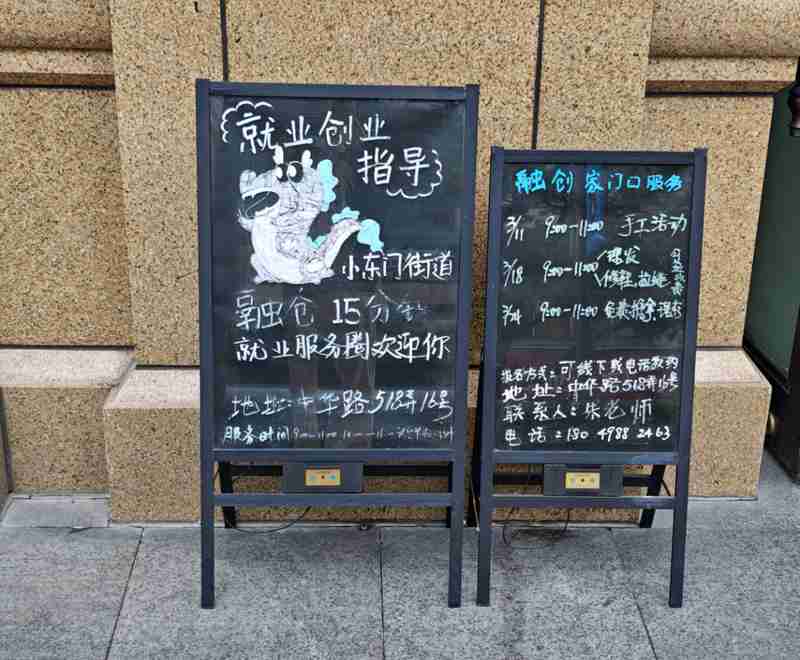 就业创业
指导
小东门街道
融虫仓 15分钟
就业服务圈欢迎你
地址:中华路518弄16号
服务时间
融创家门口服务
3/11 9:00—11:00 手工活动
3/18 9:00—11:00 理发
修鞋,拉链
3/24 9:00—11:00 免费
报名方式:可线下或电话预约
地址:中华路518弄16号
联系人:朱老师
电话:180 4988 2463